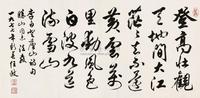 登高壯觀
天地間大江
茫茫去不還
黃雲萬
里動風色
白波九道
流雪山
李白廬山詩句
一九七七年